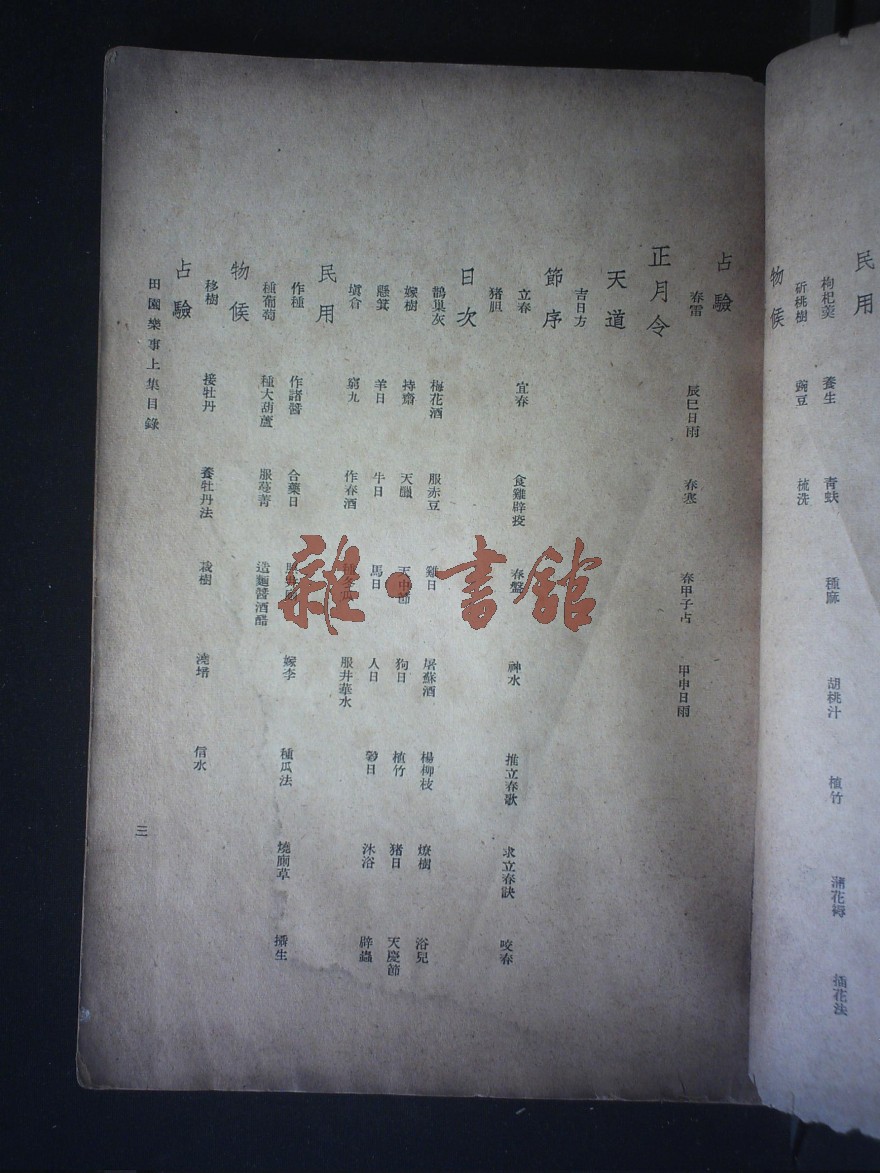 民用
枸杞羹 養生 青蚨 種麻 胡桃汁 植竹 蒲花褥 插花法
斫桃樹 豌豆 梳洗
物候
占驗
春雷 辰巳日雨 春寒 春甲子占 甲申日雨
正月令
天道
吉日方
節序
立春 宜春 食雞辟疫 春盤 神水 推立春歌 求立春訣 咬春
猪胆
日次
鵲巢灰 梅花酒 服赤豆 雞日 屠蘇酒 楊柳枝 燎樹 浴兒
嫁樹 持齋 天臘 天中節 狗日 植竹 猪日 天慶節
懸箕 羊日 牛日 馬日 人日 穀日 沐浴 辟蟲
塡倉 窮九 作春酒 服井華水
民用
作種 作諸醬 合藥日 嫁李 種瓜法 燒廁草 攢生
種葡萄 種大葫蘆 服蔓菁 造麵醬酒醋
物候
移樹 接牡丹 養牡丹法 栽樹 澆壻 信水
占驗
田園樂事上集目錄
三
雜·書舘